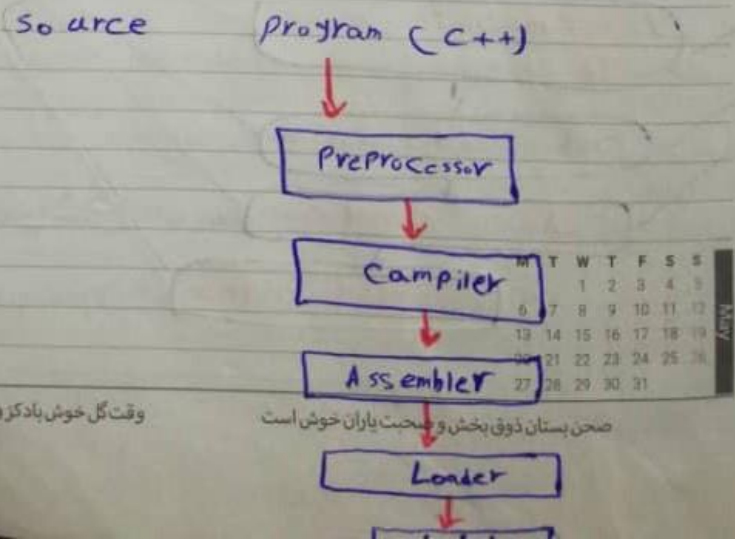 Source Program (C++)
PreProcessor
Campiler
M T W T F S S
1 2 3 4 5
6 7 8 9 10 11 12
13 14 15 16 17 18 19
20 21 22 23 24 25 26
27 28 29 30 31
May
Assembler
صحن بستان ذوق بخش و صحبت یاران خوش است
وقت گل خوش باد کز و
Loader